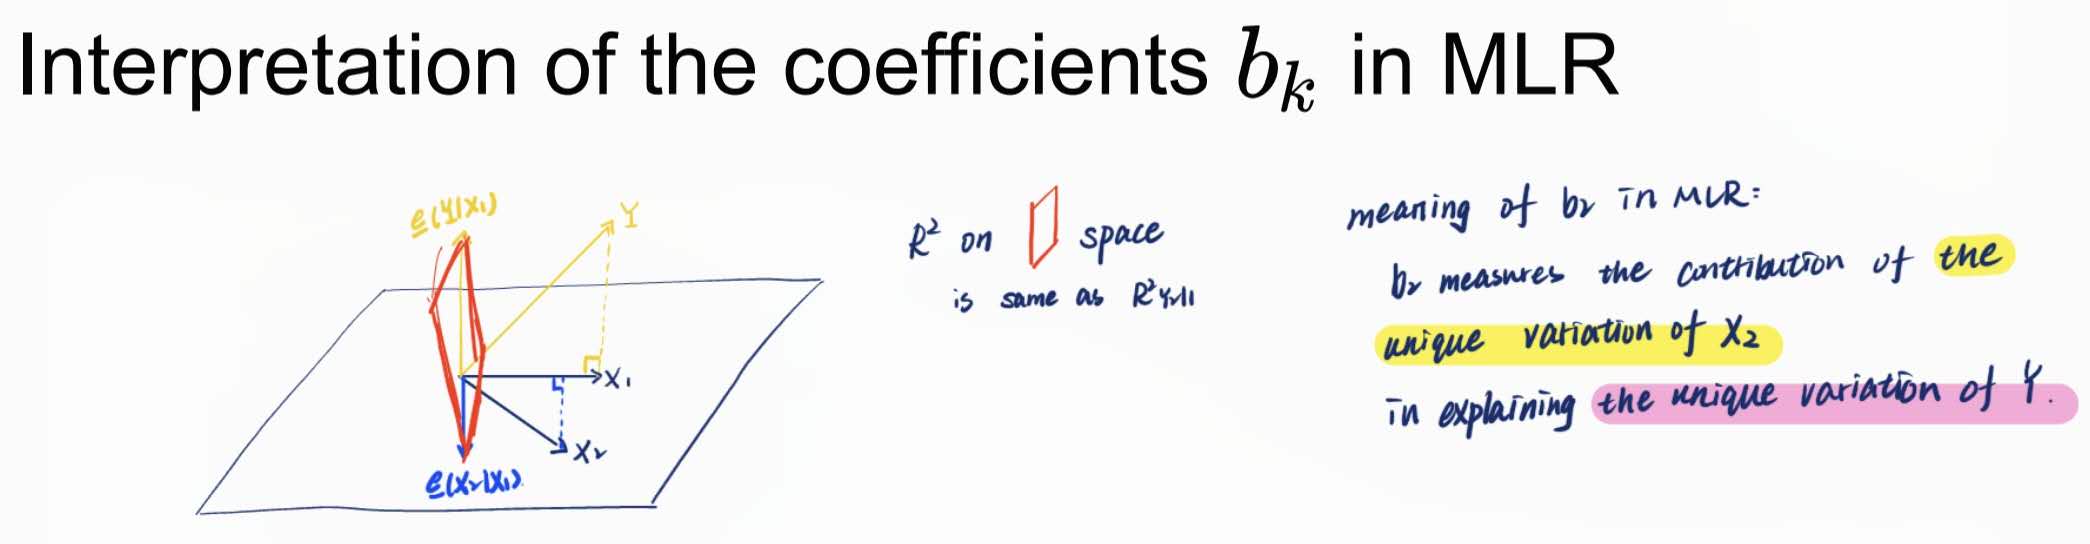 Interpretation of the coefficients b_k in MLR
e(Y|X₁)
Y
X₁
X₂
e(X₂|X₁)
R² on space
is same as R²Y2|1
meaning of b₂ in MLR:
b₂ measures the contribution of the
unique variation of X₂
in explaining the unique variation of Y.